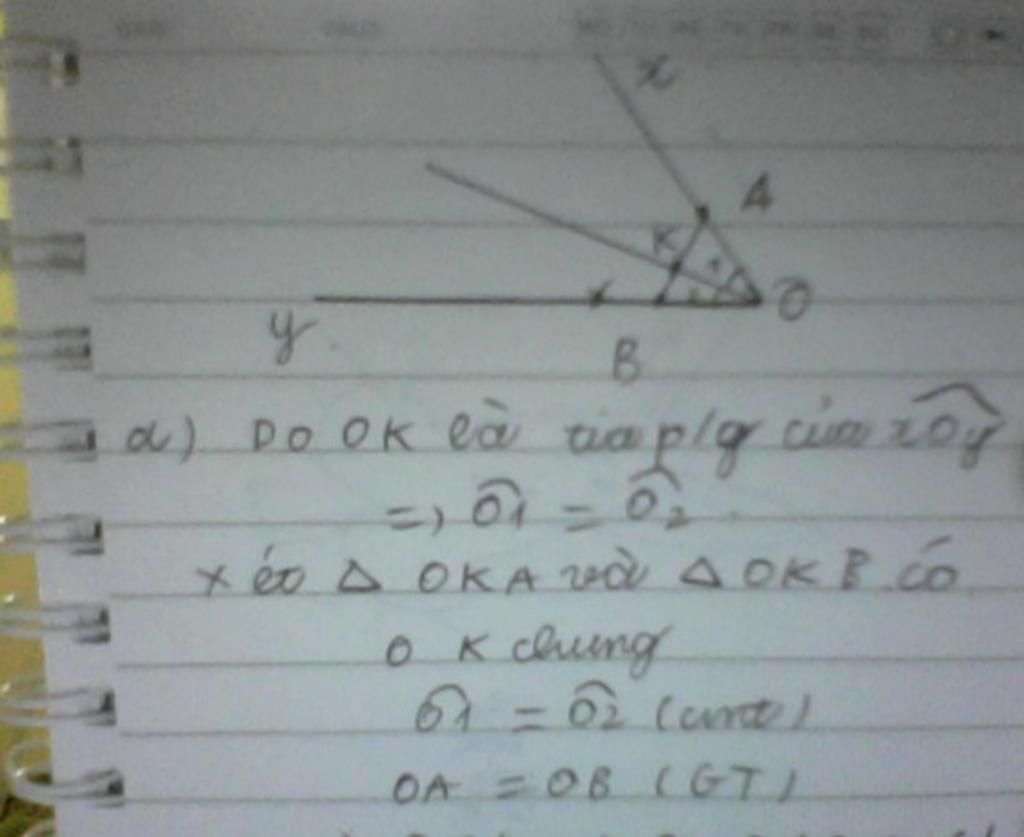 x
A
K
O
y
B
a) Do OK là tia p/g của xÔy
=> Ô1 = Ô2
Xét Δ OKA và Δ OKB có
OK chung
Ô1 = Ô2 (cmt)
OA = OB (GT)